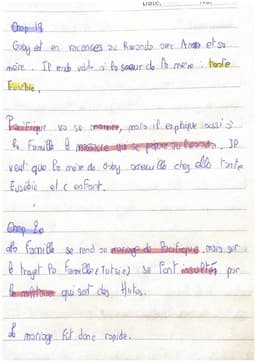 Chap 18
Gaby et en vacances au Rwanda avec Anna et sa
mère. Il rend visite à la soeur de la mère : tante
Eusébie.
Pacifique va se marrier, mais il explique aussi à
la famille le massacre qui se prépare au Rwanda. Il
veut que la mère de Gaby acceuille chez elle tante
Eusébie et c enfant.
Chap 20
La famille se rend au mariage de Pacifique, mais sur
le trajet la famille (Tutsie) se font insultés par
le militaires qui sont des Hutus.
Le mariage fut donc rapide.